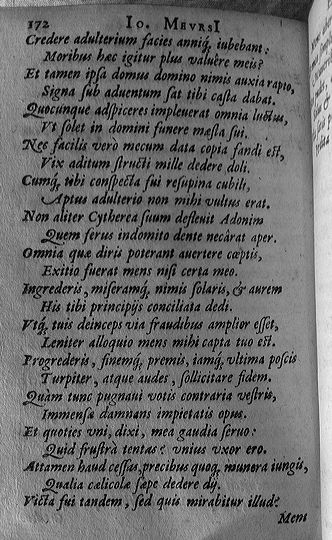 172 Io. MEVRSI
Credere adulterium facies anniq́, iubebant:
Moribus hæc igitur plus valuêre meis?
Et tamen ipsa domus domino nimis auxia rapto,
Signa sub aduentum sat tibi casta dabat.
Quocunque adspiceres impleuerat omnia luctus,
Vt solet in domini funere mæsta sui.
Nec facilis verò mecum data copia fandi est,
Vix aditum structi mille dedere doli.
Cumq́, tibi conspecta fui resupina cubili,
Aptus adulterio non mihi vultus erat.
Non aliter Cytherea suum defleuit Adonim
Quem ferus indomito dente necârat aper.
Omnia quæ diris poterant auertere cœptis,
Exitio fuerat mens nisi certa meo.
Ingrederis, miseramq́, nimis solaris, & aurem
His tibi principijs conciliata dedi.
Vtq́, tuis deinceps via fraudibus amplior esset,
Leniter alloquio mens mihi capta tuo est.
Progrederis, finemq́, premis, iamq́, vltima poscis
Turpiter, atque audes, sollicitare fidem.
Quàm tunc pugnaui votis contraria vestris,
Immensæ damnans impietatis opus.
Et quoties vni, dixi, mea gaudia seruo:
Quid frustrà tentas? vnius vxor ero.
Attamen haud cessas, precibus quoq́, munera iungis,
Qualia cælicolæ sæpe dedere dij.
Victa fui tandem, sed quis mirabitur illud?
Mens